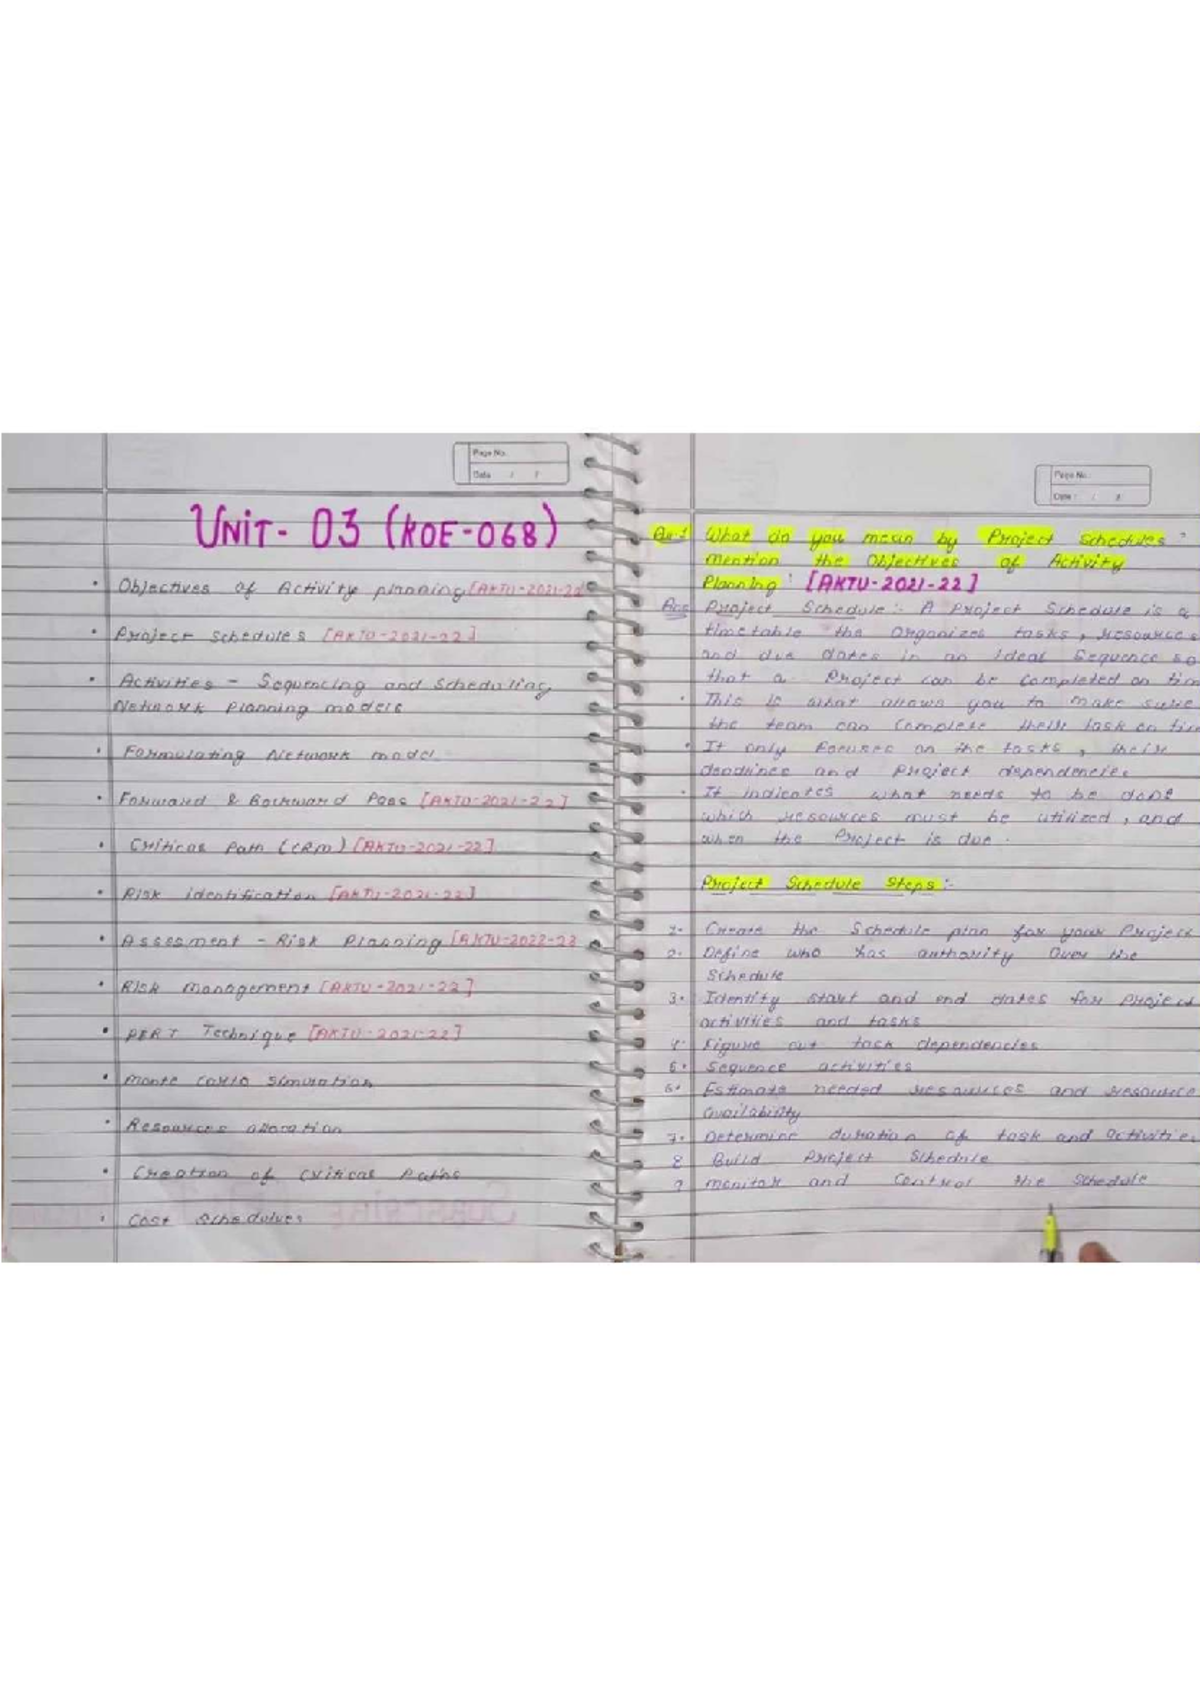 Page No.
Date / /
UNIT- 03 (KOE-068)
• Objectives of Activity planning [AKTU-2021-22]
• Project Schedules [AKTU-2021-22]
• Activities - Sequencing and Scheduling
Network Planning models
• Formulating Network model
• Forward & Backward Pass [AKTU-2021-22]
• Critical Path (CRM) [AKTU-2021-22]
• Risk identification [AKTU-2021-22]
• Assesment - Risk Planning [AKTU-2022-23
• Risk management [AKTU-2021-22]
• PERT Technique [AKTU-2021-22]
• Monte Carlo Simulation
• Resources allocation
• Creation of Critical Paths
• Cost Schedules
Page No.
Date : / /
Qu.1 What do you mean by Project Schedules ?
mention the Objectives of Activity
Planning ? [AKTU-2021-22]
Ans Project Schedule :- A Project Schedule is a
timetable the Organizes tasks, resources
and due dates in an ideal Sequence so
that a Project can be Completed on tim
• This is what allows you to make sure
the team can Complete their task on tim
• It only focuses on the tasks, their
deadlines and Project dependencies
• It indicates what needs to be done
which resources must be utilized, and
when the Project is due.
Project Schedule Steps :-
1. Create the Schedule plan for your Project
2. Define who has authority Over the
Schedule
3. Identify start and end dates for Project
activities and tasks
4. Figure out task dependencies
5. Sequence activities
6. Estimate needed resources and resource
availability
7. Determine duration of task and activities
8 Build Project Schedule
9 monitor and Control the Schedule